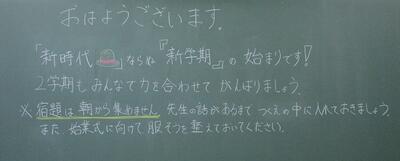 おはようございます。
「新時代」ならぬ『新学期』の始まりです!
2学期も みんなで力を合わせて がんばりましょう。
※ 宿題は 朝から集めません。先生の話があるまで つくえの中に入れておきましょう。
また、始業式に向けて、服そうを整えておいてください。